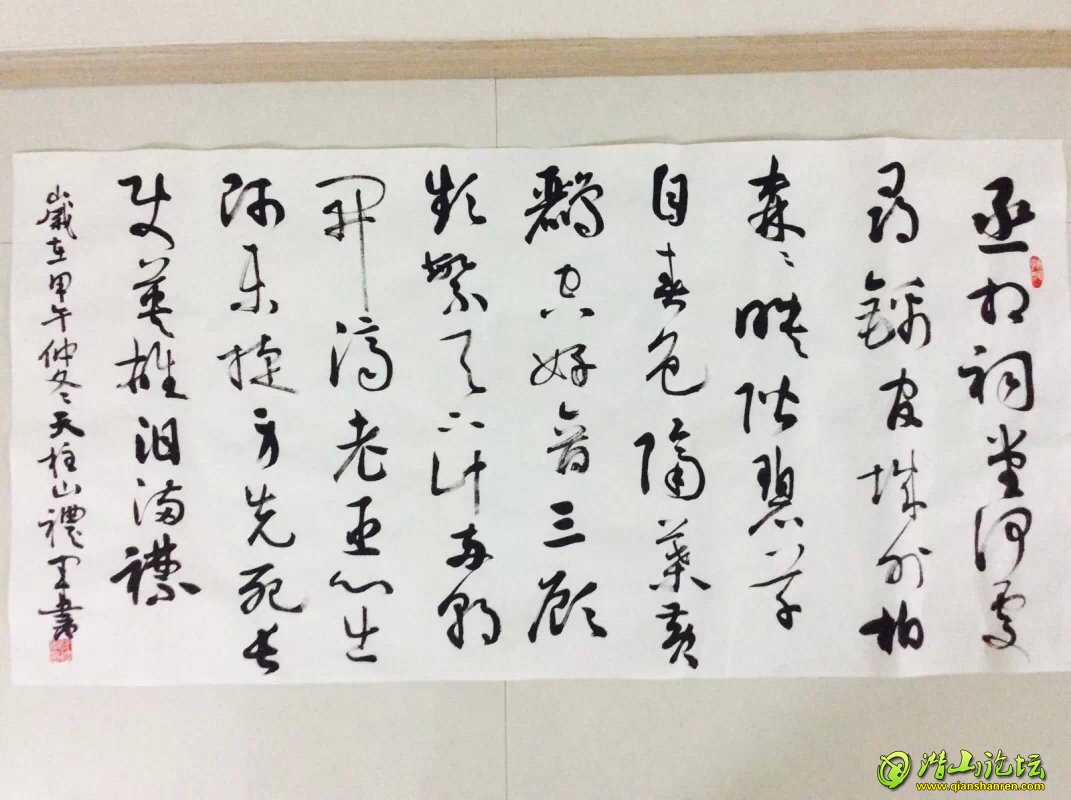 丞相祠堂何處
尋錦官城外柏
森々映階碧草
自春色隔葉黃
鸝空好音三顧
頻繁天下計兩朝
開濟老臣心出
師未捷身先死長
使英雄泪滿襟
歲在甲午仲冬天柱山禮書
潜山论坛
www.qianshanren.com